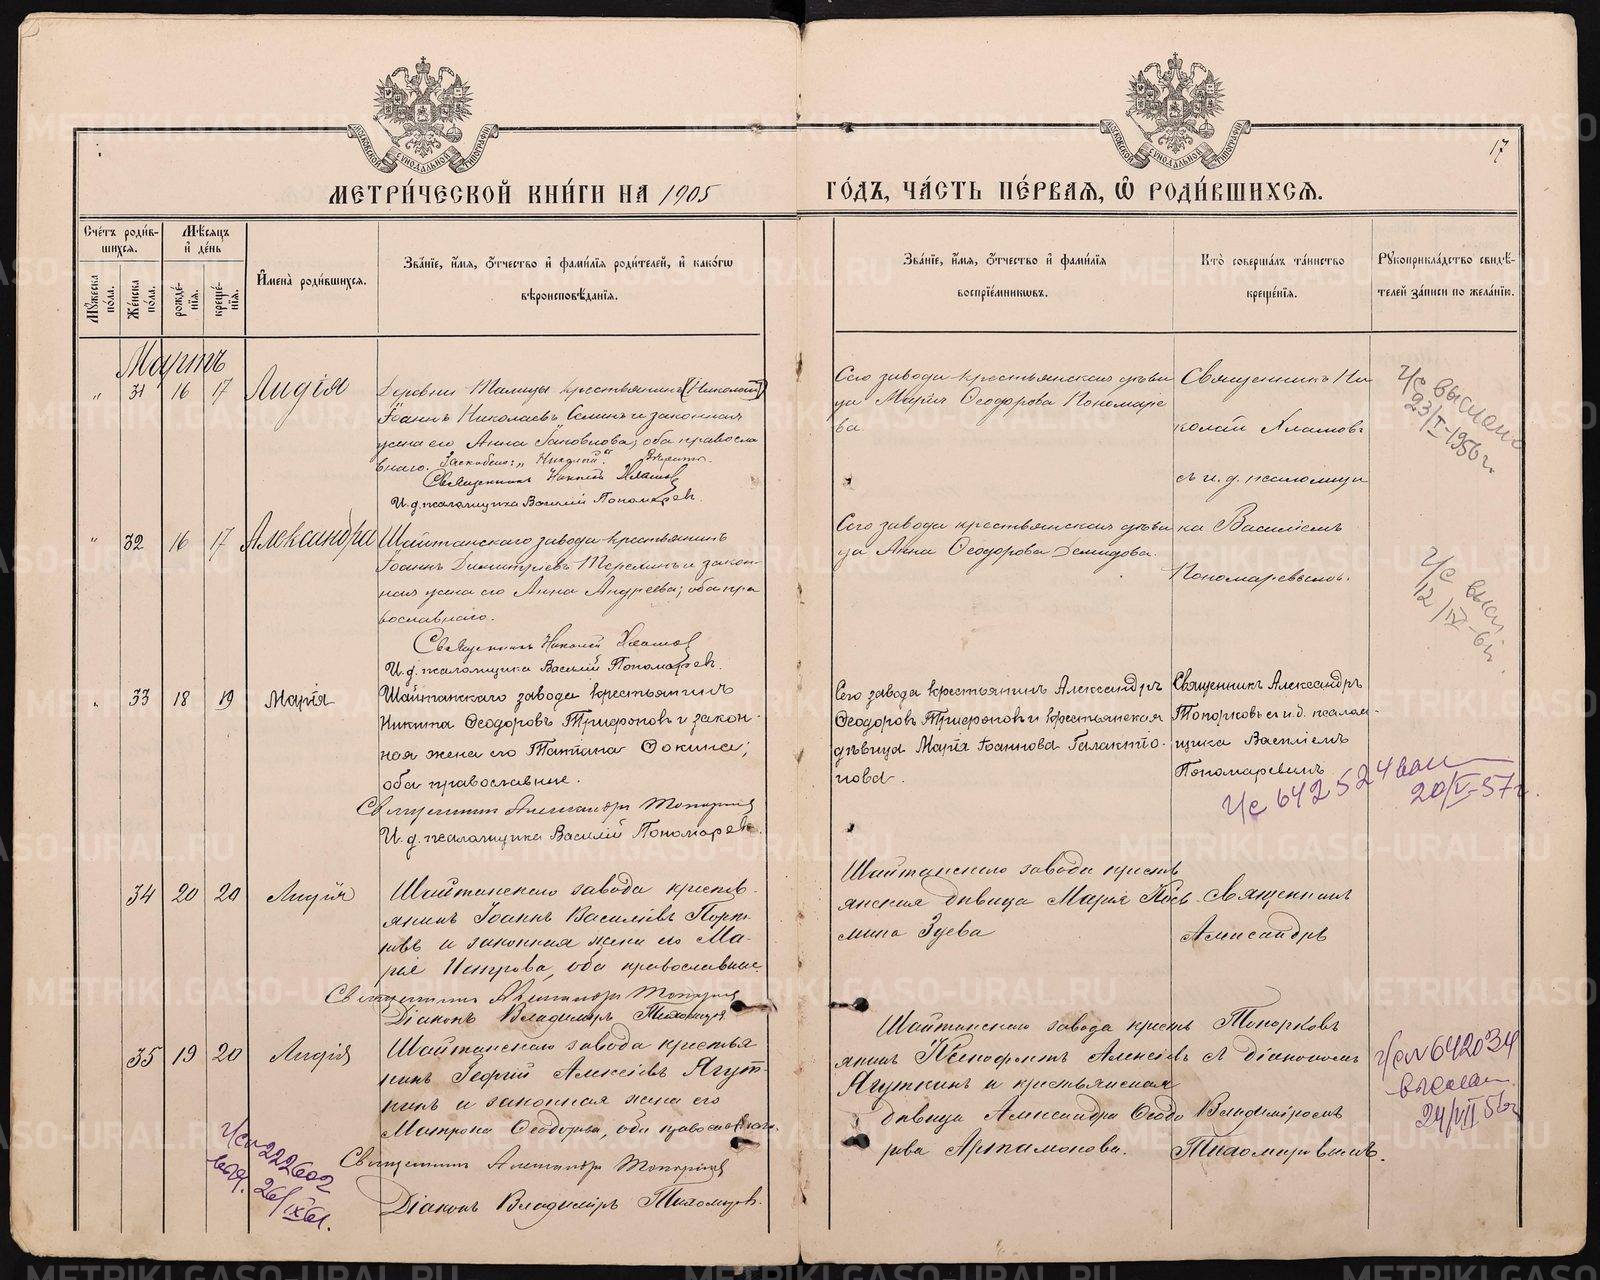 МОСКОВСКОЙ СУНОДАЛЬНОЙ ТИПОГРАФІИ
МОСКОВСКОЙ СУНОДАЛЬНОЙ ТИПОГРАФІИ
17
МЕТРИ́ЧЕСКОЙ КНИ́ГИ НА 1905
ГО́ДЪ, ЧА́СТЬ ПЕ́РВАЯ, Ѽ РОДИ́ВШИХСЯ.
Сче́тъ роди́в-
шихся.
Мꙋ́жеска пола.
Же́нска по́ла.
Мѣ́сяцъ
и҆ де́нь
рожде́-
нїя.
креще́-
нїя.
И҆мена̀ роди́вшихся.
Зва́нїе, и҆́мя, ѻ҆́тчество и҆ фами́лїя роди́телей, и҆ како́гѡ
вѣроисповѣ́данїя.
Зва́нїе, и҆́мя, ѻ҆́тчество и҆ фами́лїя
воспрїе́мникѡвъ.
Кто̀ соверша́лъ та́инство
креще́нїя.
Рꙋкоприкла́дство свидѣ́-
телей за́писи по жела́нїю.
Мартъ
" 31 16 17 Лидія
Деревни Талицы крестьянинъ (Николай)
Іоаннъ Николаевъ и законная
жена его Анна Іаковлова; оба правосла
внаго. Заскоблено: „Николай".
Священникъ Николай Хламов
И. д. псаломщика Василій Пономарев.
Сего завода крестьянская дѣви
ца Марія Ѳеодорова Пономаре
ва
Священникъ Ни
колай Хламовъ
съ и. д. псаломщи
ка Василіемъ
Пономаревымъ.
ч/с выслано
23/I-1956г.
" 32 16 17 Александра
Шайтанскаго завода крестьянинъ
Іоаннъ Димитріевъ и закон-
ная жена его Анна Андреева; оба пра
вославнаго.
Священникъ Николай Хламов
И. д. псаломщика Василій Пономарев.
Сего завода крестьянская дѣви
ца Анна Ѳеодорова Демидова.
ч/с высл
12/IV-61г.
33 18 19 Марія
Шайтанскаго завода крестьянинъ
Никита Ѳеодоровъ Трифоновъ и закон-
ная жена его Татіана Фокина;
оба православные.
Священникъ Александръ Топорков
И. д. псаломщика Василій Пономарев.
Сего завода крестьянинъ Александръ
Ѳеодоровъ Трифоновъ и крестьянская
дѣвица Марія Іоаннова Галактіо-
нова.
Священникъ Александръ
Топорковъ съ и. д. псалом-
щика Василіемъ
Пономаревымъ
ч/с 642524 вып
20/V-57г.
34 20 20 Лидія
Шайтанскаго завода кресть-
янинъ Іоаннъ Василіевъ
и законная жена его Ма-
рія Петрова, оба православные.
Священникъ Александръ Топорков
Діаконъ Владиміръ Тихомиров.
Шайтанскаго завода кресть
янская дѣвица Марія Кось
мина Зуева
Священникъ
Александръ
Топорковъ
съ діакономъ
Владиміромъ
Тихомировымъ.
35 19 20 Лидія
Шайтанскаго завода крестья
нинъ Георгій Алексіевъ Ягут-
кинъ и законная жена его
Матрона Ѳеодорова, оба православнаго.
Священникъ Александръ Топорков
Діаконъ Владиміръ Тихомиров.
Шайтанскаго завода кресть
янинъ Ксенофонтъ Алексіевъ
Ягуткинъ и крестьянская
дѣвица Александра Ѳеодо
рова Артамонова.
ч/с № 642034
выслан
24/VII 56г
ч/с 222602
выд. 26/IX 61.
METRIKI.GASO-URAL.RU